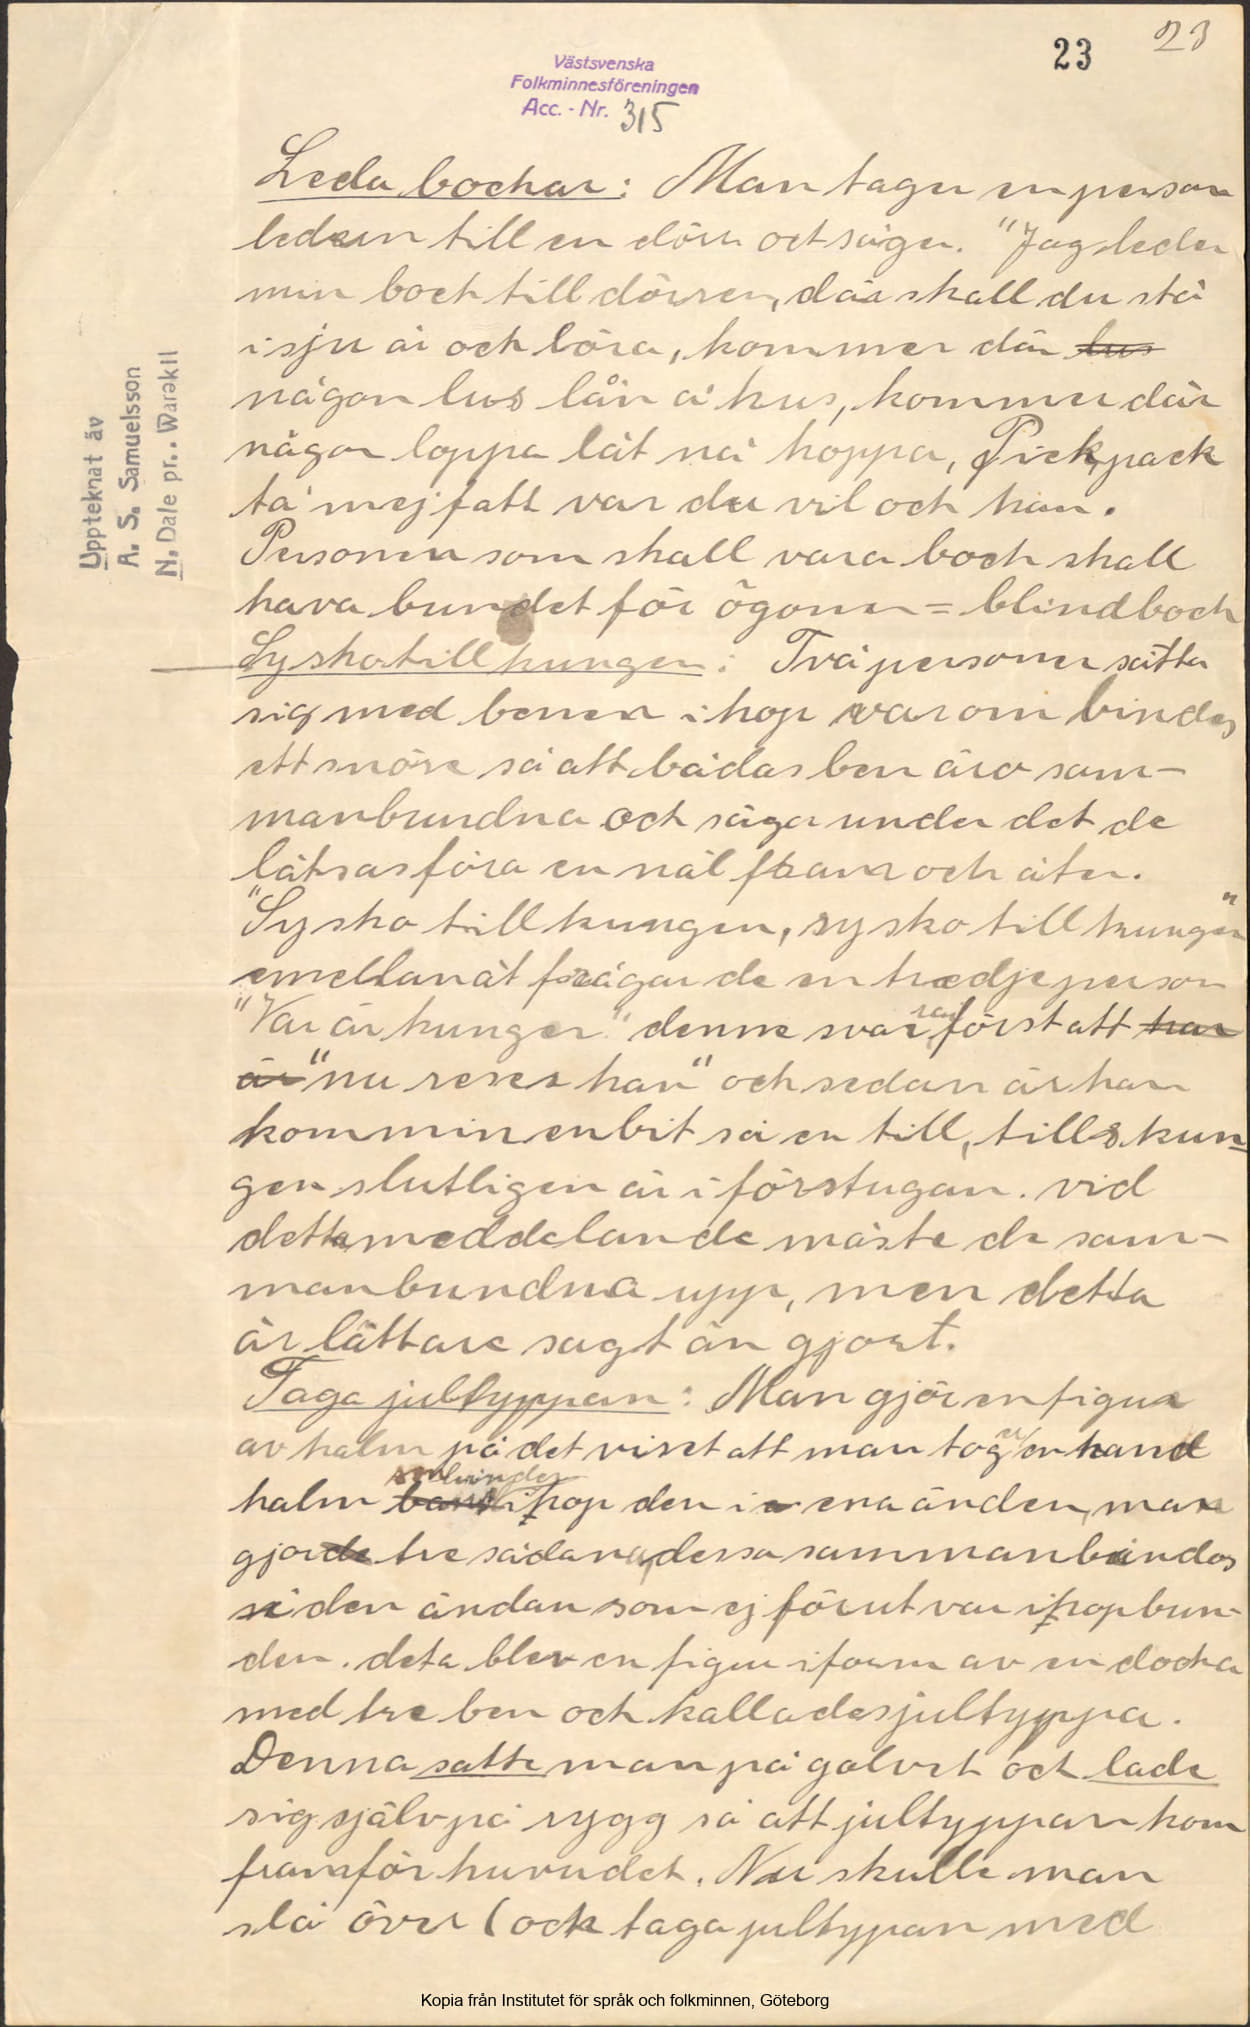 23
23
Västsvenska
Folkminnesföreningen
Acc. - Nr. 315
Uppteknat av
A. S. Samuelsson
N. Dale pr. Warekil
Leda bockar: Man tager en person
leder in till en dörr och säger. "Jag leder
min bock till dörren, där skall du stå
i sju år och löra, kommer där lus
någon lus lån a' hus, kommer där
någon loppa låt na' hoppa, Pick, pack
ta' mej fatt var du vil och kan.
Personen som skall vara bock skall
hava bundet för ögonen = blindbock
Sy sko till kungen: Två personer sätta
sig med benen ihop varom bindes
ett snöre så att bådas ben äro sam-
manbundna och säga under det de
låtsas föra en nål fram och åter.
"Sy sko till kungen, sy sko till kungen"
emellanåt frågar de en tredje person
"Var är kungen" denne svarar först att han
är "nu reser han" och sedan är han
kommin en bit så en till, tills kun
gen slutligen är i förstugan. vid
detta meddelande måste de sam-
manbundna upp, men detta
är lättare sagt än gjort.
Taga jultyppan: Man gjör en figur
av halm på det viset att man tog en hand
halm som binder ihop den i ena änden, man
gjorde tre sådana, dessa sammanbindas
i den ändan som ej förut var ihopbun-
den. deta blev en figur i form av en docka
med tre ben och kallades jultyppa.
Denna satte man på golvet och lade
sig själv på rygg så att jultyppan kom
framför huvudet. Nu skulle man
slå över (ock taga jultypan med
Kopia från Institutet för språk och folkminnen, Göteborg